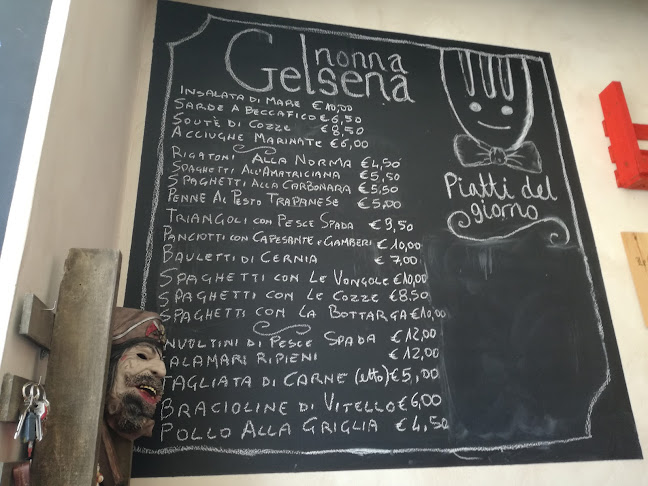 nonna
Gelsena
INSALATA DI MARE €10,00
SARDE A BECCAFICO €6,50
SOUTÈ DI COZZE €8,50
ACCIUGHE MARINATE €6,00
RIGATONI ALLA NORMA €4,50
SPAGHETTI ALL'AMATRICIANA €5,50
SPAGHETTI ALLA CARBONARA €5,50
PENNE AL PESTO TRAPANESE €5,00
TRIANGOLI CON PESCE SPADA €9,50
PANCIOTTI CON CAPESANTE E GAMBERI €10,00
BAULETTI DI CERNIA €7,00
SPAGHETTI CON LE VONGOLE €10,00
SPAGHETTI CON LE COZZE €8.50
SPAGHETTI CON LA BOTTARGA €10,00
INVOLTINI DI PESCE SPADA €12,00
CALAMARI RIPIENI €12,00
TAGLIATA DI CARNE (etto) €5,00
BRACIOLINE DI VITELLO €6,00
POLLO ALLA GRIGLIA €4,50
Piatti del
giorno